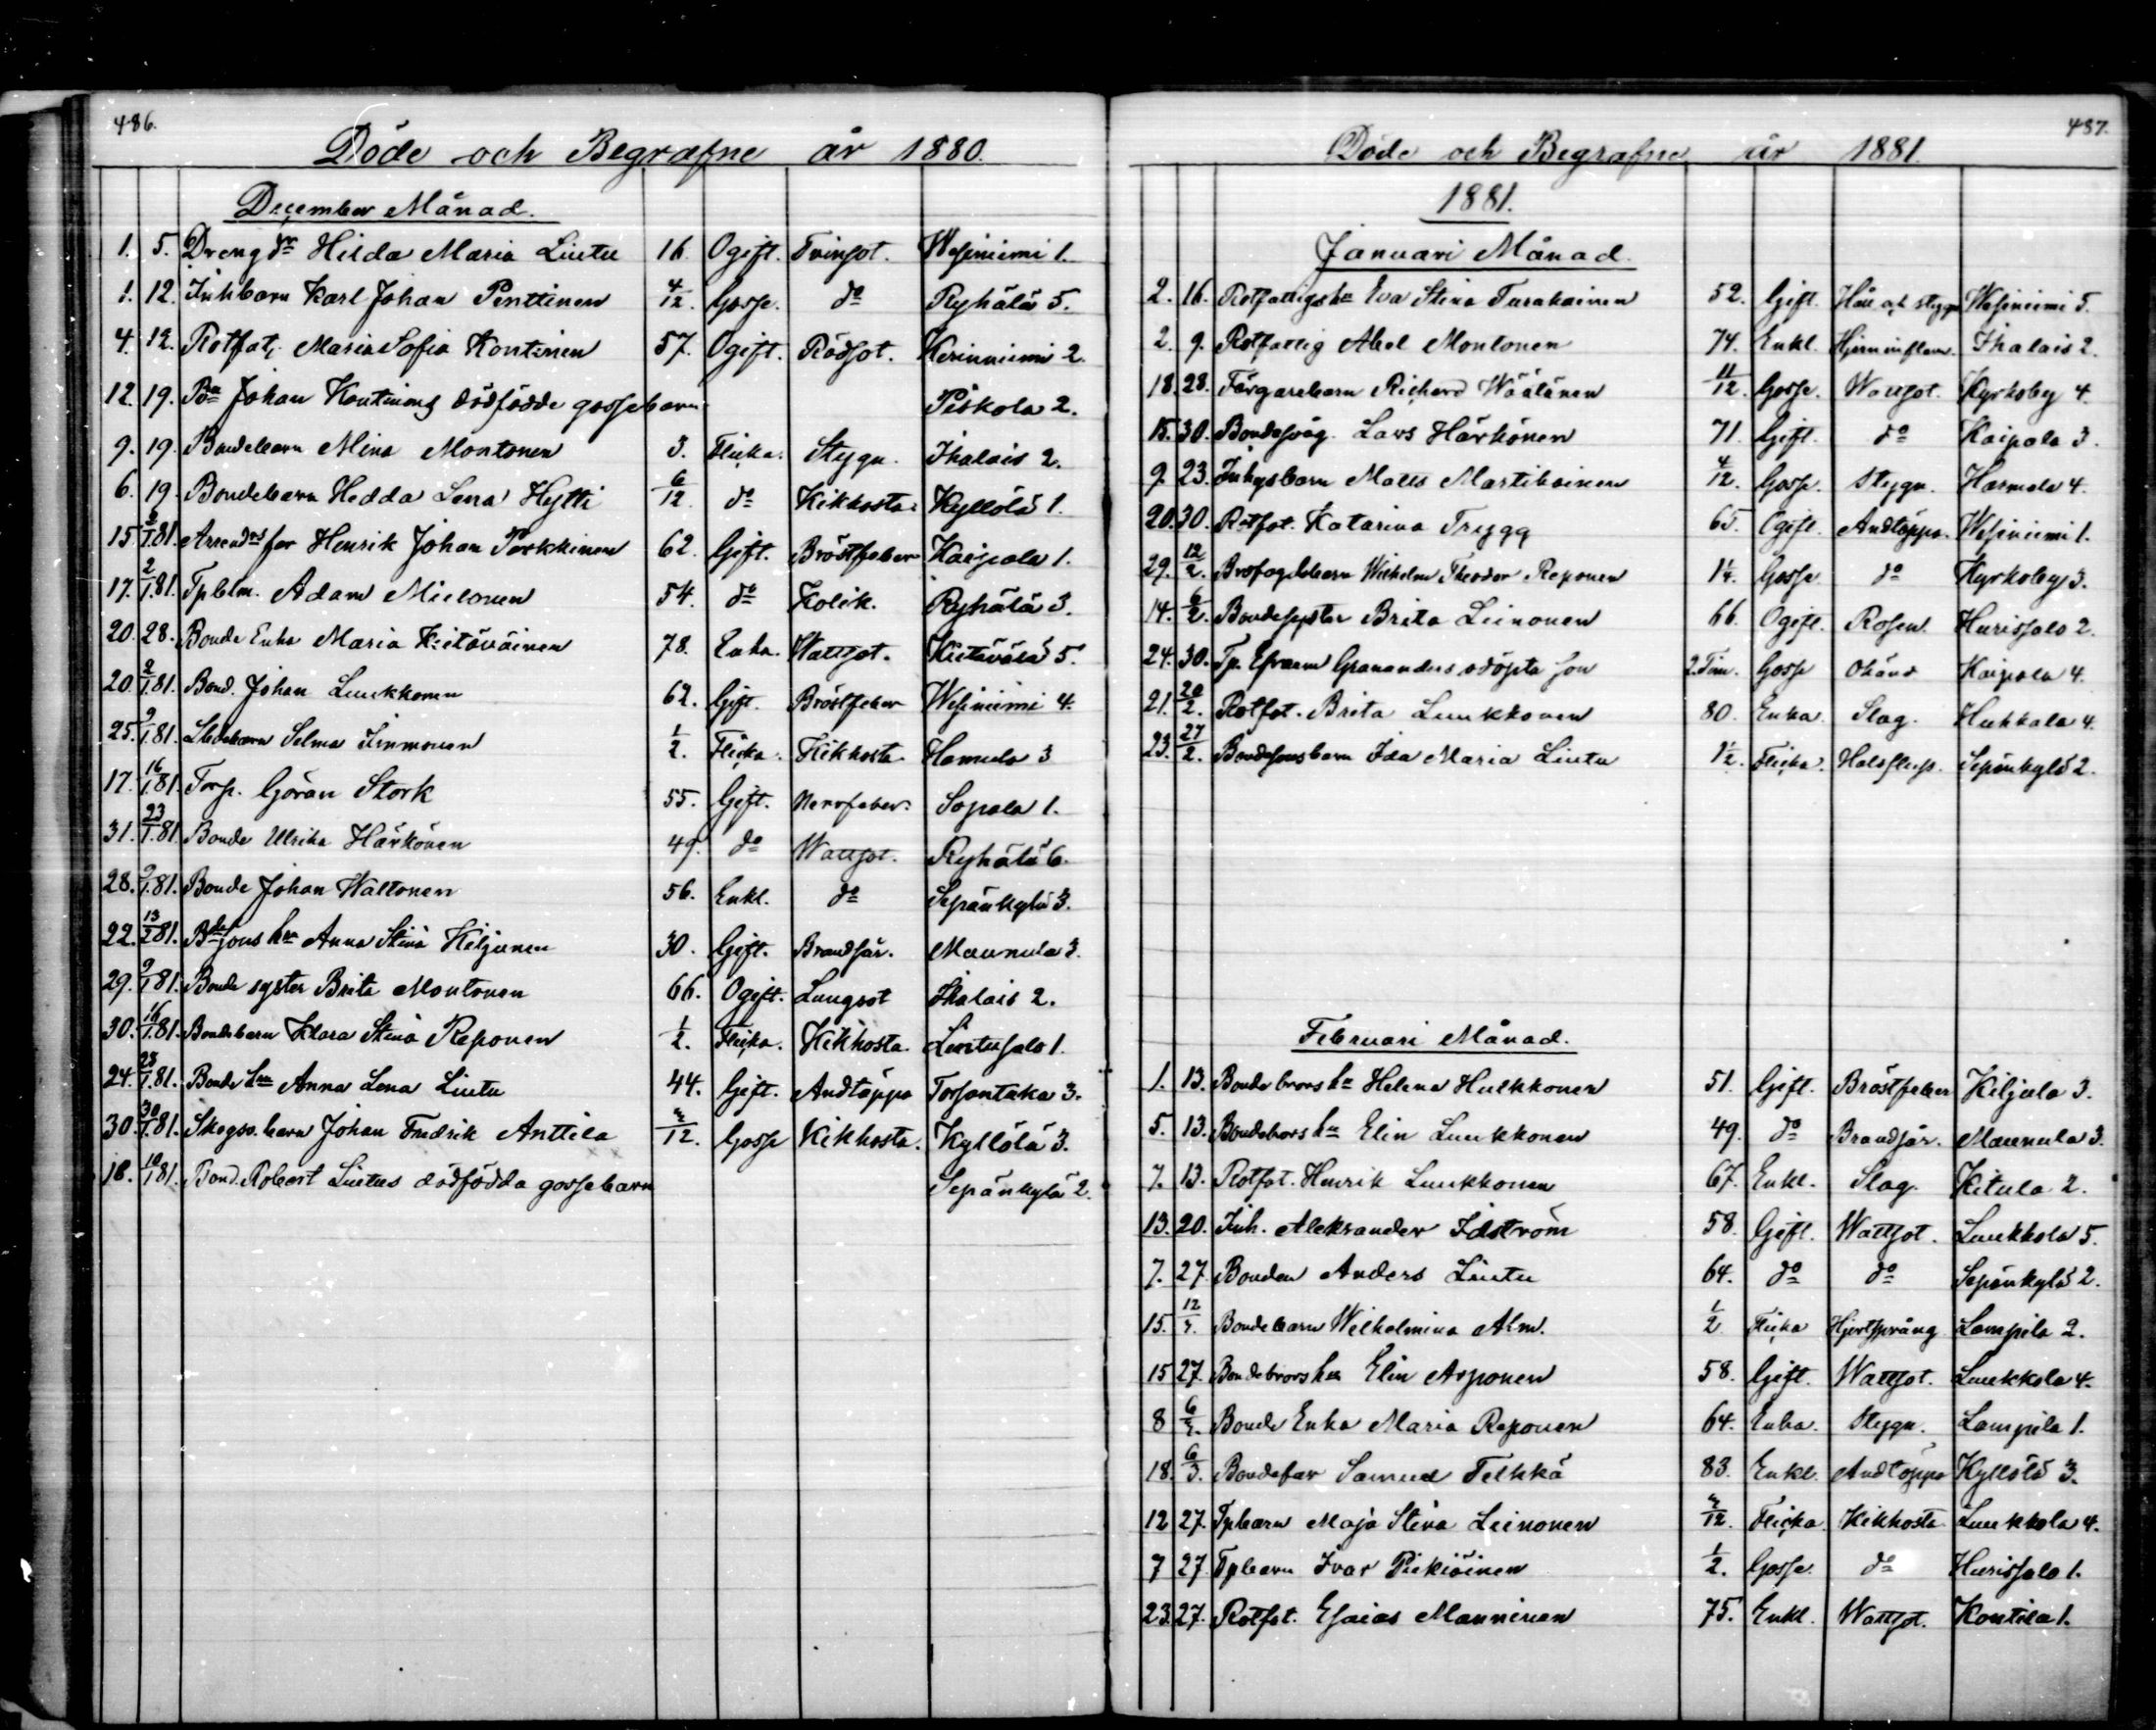 486.
Döde och Begrafne år 1880.
December Månad.
1. 5. Dreng dr Hilda Maria Liutu 16 Ogift. Tvinsot. Wesiniemi 1.
1. 12. Inhbarn Karl Johan Penttinen 4/12 Gosse. do Ryhälä 5.
4. 12. Rotfat. Maria Sofia Kontinen 57. Ogift. Rödsot. Kesinniemi 2.
12. 19. Johan Kontinens dödfödde gossebarn Piskola 2.
9. 19. Bondebarn Mina Montonen 3. Flicka. Stygn. Ihalais 2.
6. 19. Bondebarn Hedda Lena Hytti 6/12 do Kikhosta. Kyllölä 1.
15. 2/1.81. Arrendrs far Henrik Johan Parkkinen 62. Gift. Bröstfeber Kaipola 1.
17. 2/1.81. Tpblm. Adam Mielonen 54. do Kolik. Ryhälä 3.
20. 28. Bonde Enka Maria Kietäväinen 78. Enka. Wattsot. Kietävälä 5.
20. 2/1.81. Bond. Johan Luukkonen 62. Gift. Bröstfeber Wesiniemi 4.
25. 9/1.81. Selma Immonen 1/2. Flicka. Kikhosta. Hamula 3
17. 16/1.81. Torp. Göran Stork 55. Gift. Nervfeber. Sopala 1.
31. 23/1.81. Bonde Ulrika Härkönen 49. do Wattsot. Ryhälä 6.
28. 9/1.81. Bonde Johan Waltonen 56. Enkl. do Sepänkylä 3.
22. 13/2.81. Bdesons hu Anna Stina Kiljunen 30. Gift. Brandsår. Maunula 3.
29. 9/1.81. Bonde syster Brita Montonen 66. Ogift. Lungsot Ihalais 2.
30. 16/1.81. Bondebarn Klara Stina Reponen 1/2. Flicka. Kikhosta. Liutusalo 1.
24. 23/1.81. Bonde hu Anna Lena Liutu 44. Gift. Andtäppa Torsantaka 3.
30. 30/1.81. Skogsv. barn Johan Fredrik Anttila 3/12. Gosse Kikhosta. Kyllölä 3.
18. 10/1.81. Bond. Robert Liutus dödfödda gossebarn Sepänkylä 2.
487.
Döde och Begrafne år 1881.
1881.
Januari Månad.
2. 16. Rotfattigshu Eva Stina Turakainen 52. Gift. Håll och stygn Wesiniemi 5.
2. 9. Rotfattig Abel Montonen 74. Enkl. Hjerninflam. Ihalais 2.
18. 28. Färgarebarn Richard Wäälänen 11/12. Gosse. Wattsot. Kyrkoby 4.
15. 30. Bondesvåg. Lars Härkönen 71. Gift. do Kaipola 3.
9. 23. Inhysbarn Matts Martikainen 4/12. Gosse. Stygn. Harmala 4.
20. 30. Rotfat. Katarina Trygg 65. Ogift. Andtäppa. Wesiniemi 1.
29. 12/2. Brofogdebarn Wilhelm Theodor Reponen 1 1/4. Gosse do Kyrkoby 3.
14. 6/2. Bondesyster Brita Leinonen 66. Ogift. Rosen. Hurissalo 2.
24. 30. Tp. Efraim Grananders odöpta son 2. Tim. Gosse Okänd Kaipola 4.
21. 20/2. Rotfat. Brita Luukkonen 80. Enka. Slag. Hukkala 4.
23. 27/2. Bondesonsbarn Ida Maria Liutu 1 1/2. Flicka. Halsfluss. Sepänkylä 2.
Februari Månad.
1. 13. Bondebrors hu Helena Hulkkonen 51. Gift. Bröstfeber Kiljula 3.
5. 13. Bondebrors hu Elin Luukkonen 49. do Brandsår. Maunula 3.
7. 13. Rotfat. Henrik Luukkonen 67. Enkl. Slag. Kitula 2.
13. 20. Inh. Aleksander Idström 58. Gift. Wattsot. Luukkola 5.
7. 27 Bonden Anders Liutu 64. do do Sepänkylä 2.
15. 12/3. Bondebarn Wilhelmina Alm. 1/2 Flicka Hjertsprång Lampila 2.
15 27. Bondebrors hu Elin Asponen 58. Gift. Wattsot. Luukkola 4.
8 6/3. Bonde Enka Maria Reponen 64. Enka. Stygn. Lampila 1.
18. 6/3. Bondefar Samuel Telkkä 83. Enkl. Andtäppa Kyllölä 3.
12 27. Tpbarn Maja Stina Leinonen 3/12. Flicka. Kikhosta Luukkola 4.
7 27 Tpbarn Ivar Piikiäinen 1/2. Gosse. do Hurissalo 1.
23. 27. Rotfat. Esaias Manninen 75. Enkl. Wattsot. Kontila 1.